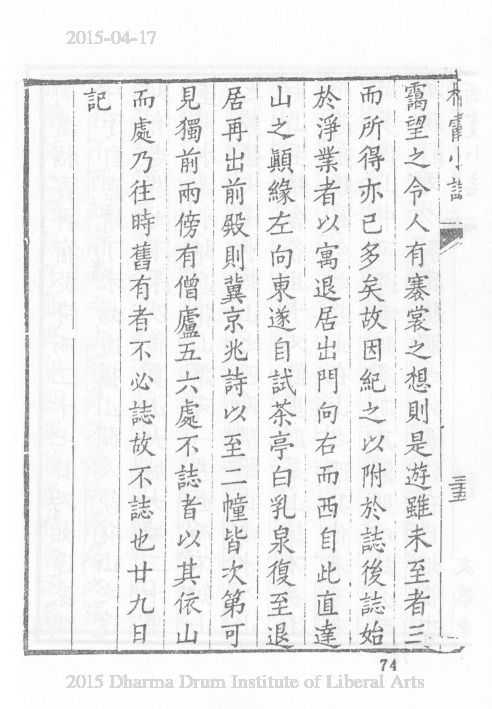 2015-04-17
小誌
靄望之令人有褰裳之想則是遊雖未至者三
而所得亦已多矣故因紀之以附於誌後誌始
於淨業者以寓退居出門向右而西自此直達
山之顚緣左向東遂自試茶亭白乳泉復至退
居再出前殿則冀京兆詩以至二幢皆次第可
見獨前兩傍有僧廬五六處不誌者以其依山
而處乃往時舊有者不必誌故不誌也廿九日
記
三十五
74
2015 Dharma Drum Institute of Liberal Arts